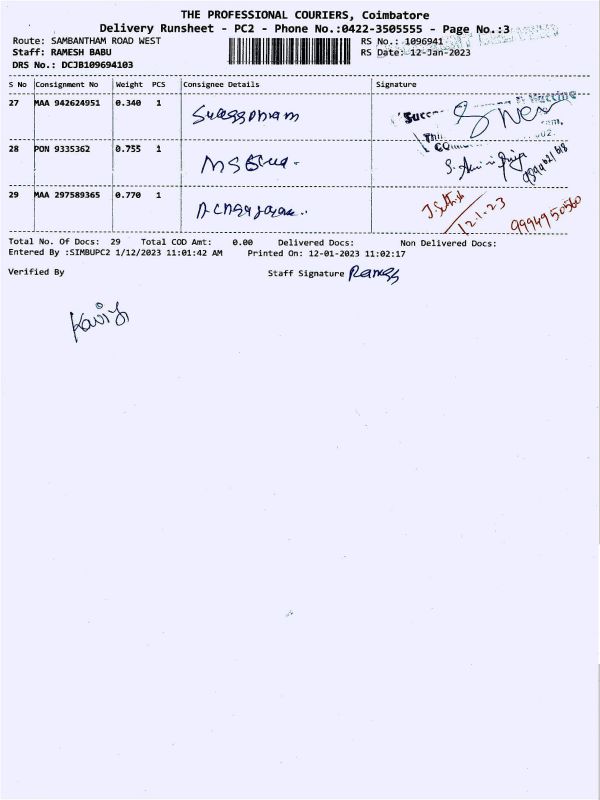 THE PROFESSIONAL COURIERS, Coimbatore
Delivery Runsheet - PC2 - Phone No.:0422-3505555 - Page No.:3
Route: SAMBANTHAM ROAD WEST RS No.: 1096941
Staff: RAMESH BABU RS Date: 12-Jan-2023
DRS No.: DCJB109694103
S No Consignment No Weight PCS Consignee Details Signature
27 MAA 942624951 0.340 1
28 PON 9335362 0.755 1
29 MAA 297589365 0.770 1
J. Sathish
12.1.23
9994950560
Total No. Of Docs: 29 Total COD Amt: 0.00 Delivered Docs: Non Delivered Docs:
Entered By :SIMBUPC2 1/12/2023 11:01:42 AM Printed On: 12-01-2023 11:02:17
Verified By Staff Signature Ramesh